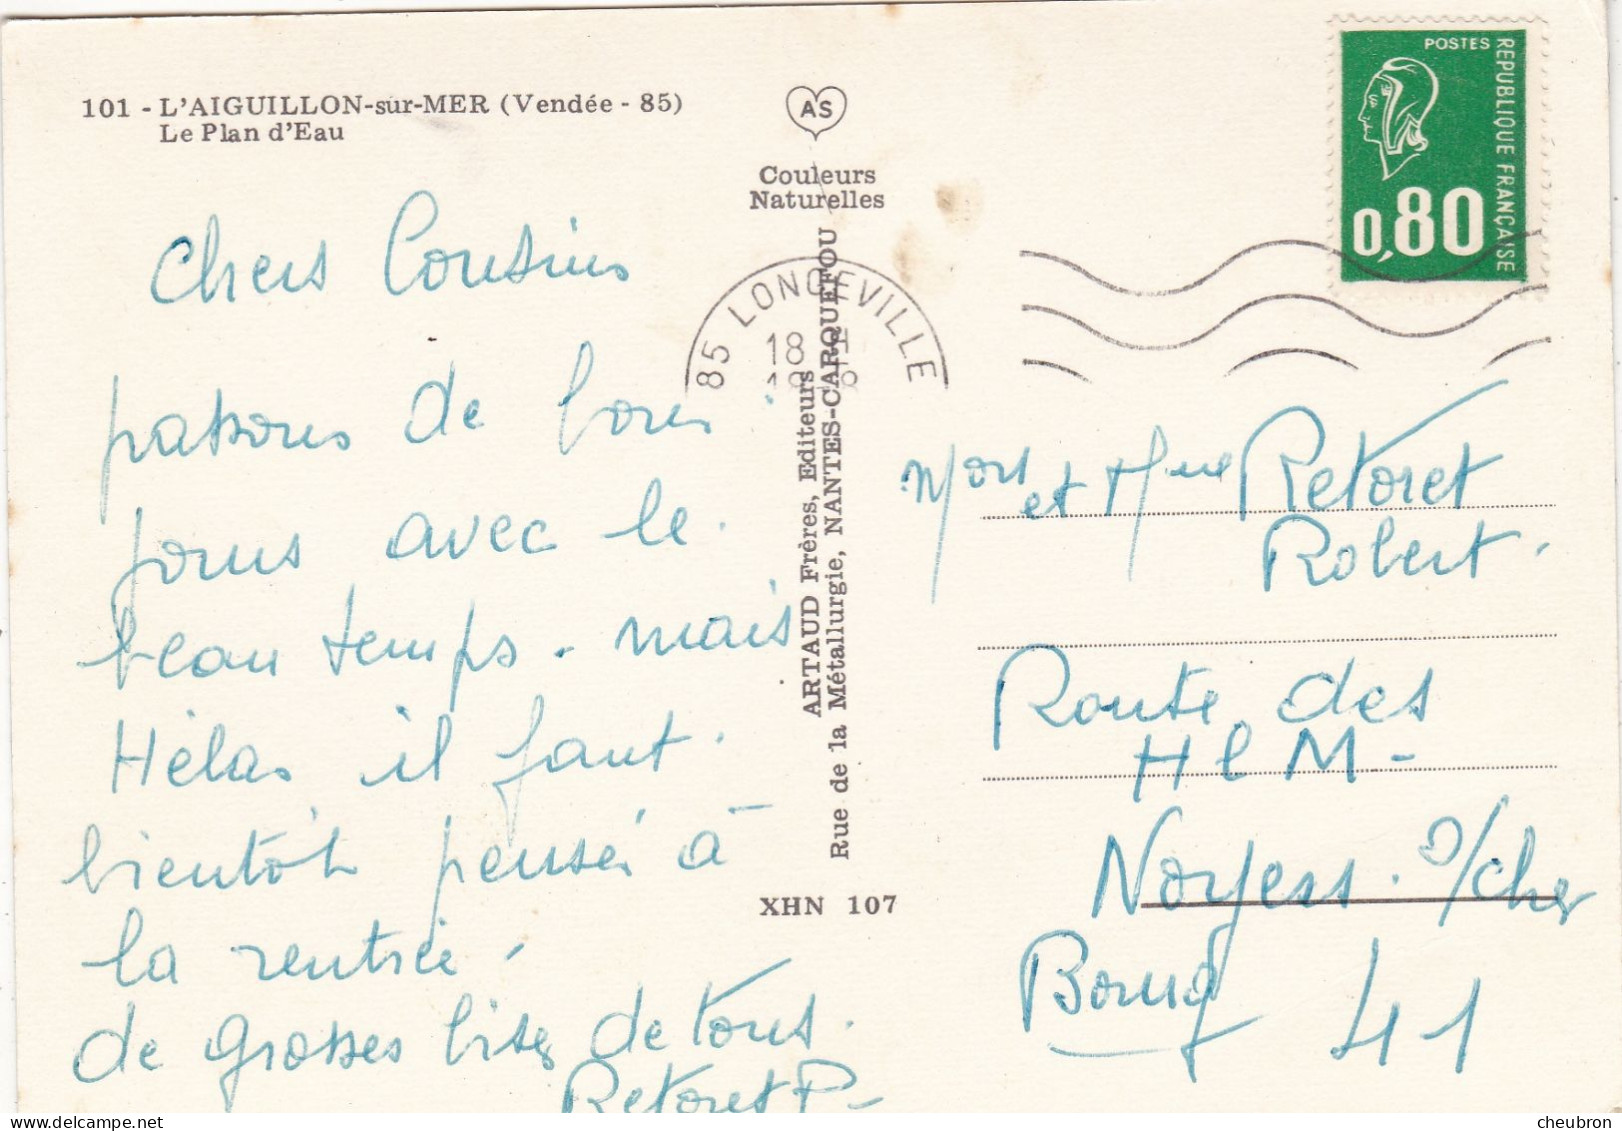 101 - L'AIGUILLON-sur-MER (Vendée - 85)
Le Plan d'Eau
AS
Couleurs
Naturelles
POSTES
REPUBLIQUE FRANÇAISE
0,80
85 LONGEVILLE
18
ARTAUD Frères, Editeurs
Rue de la Métallurgie, NANTES-CARQUEFOU
XHN 107
Chers Cousins
passons de bons
jours avec le
beau temps. mais
Hélas il faut
bientôt penser à
la rentrée.
de grosses bises de tous.
Retoret P-
Mons et Mme Retoret
Robert.
Route des
H l M -
Noyers. s/cher
Bourg 41
cheubron.com